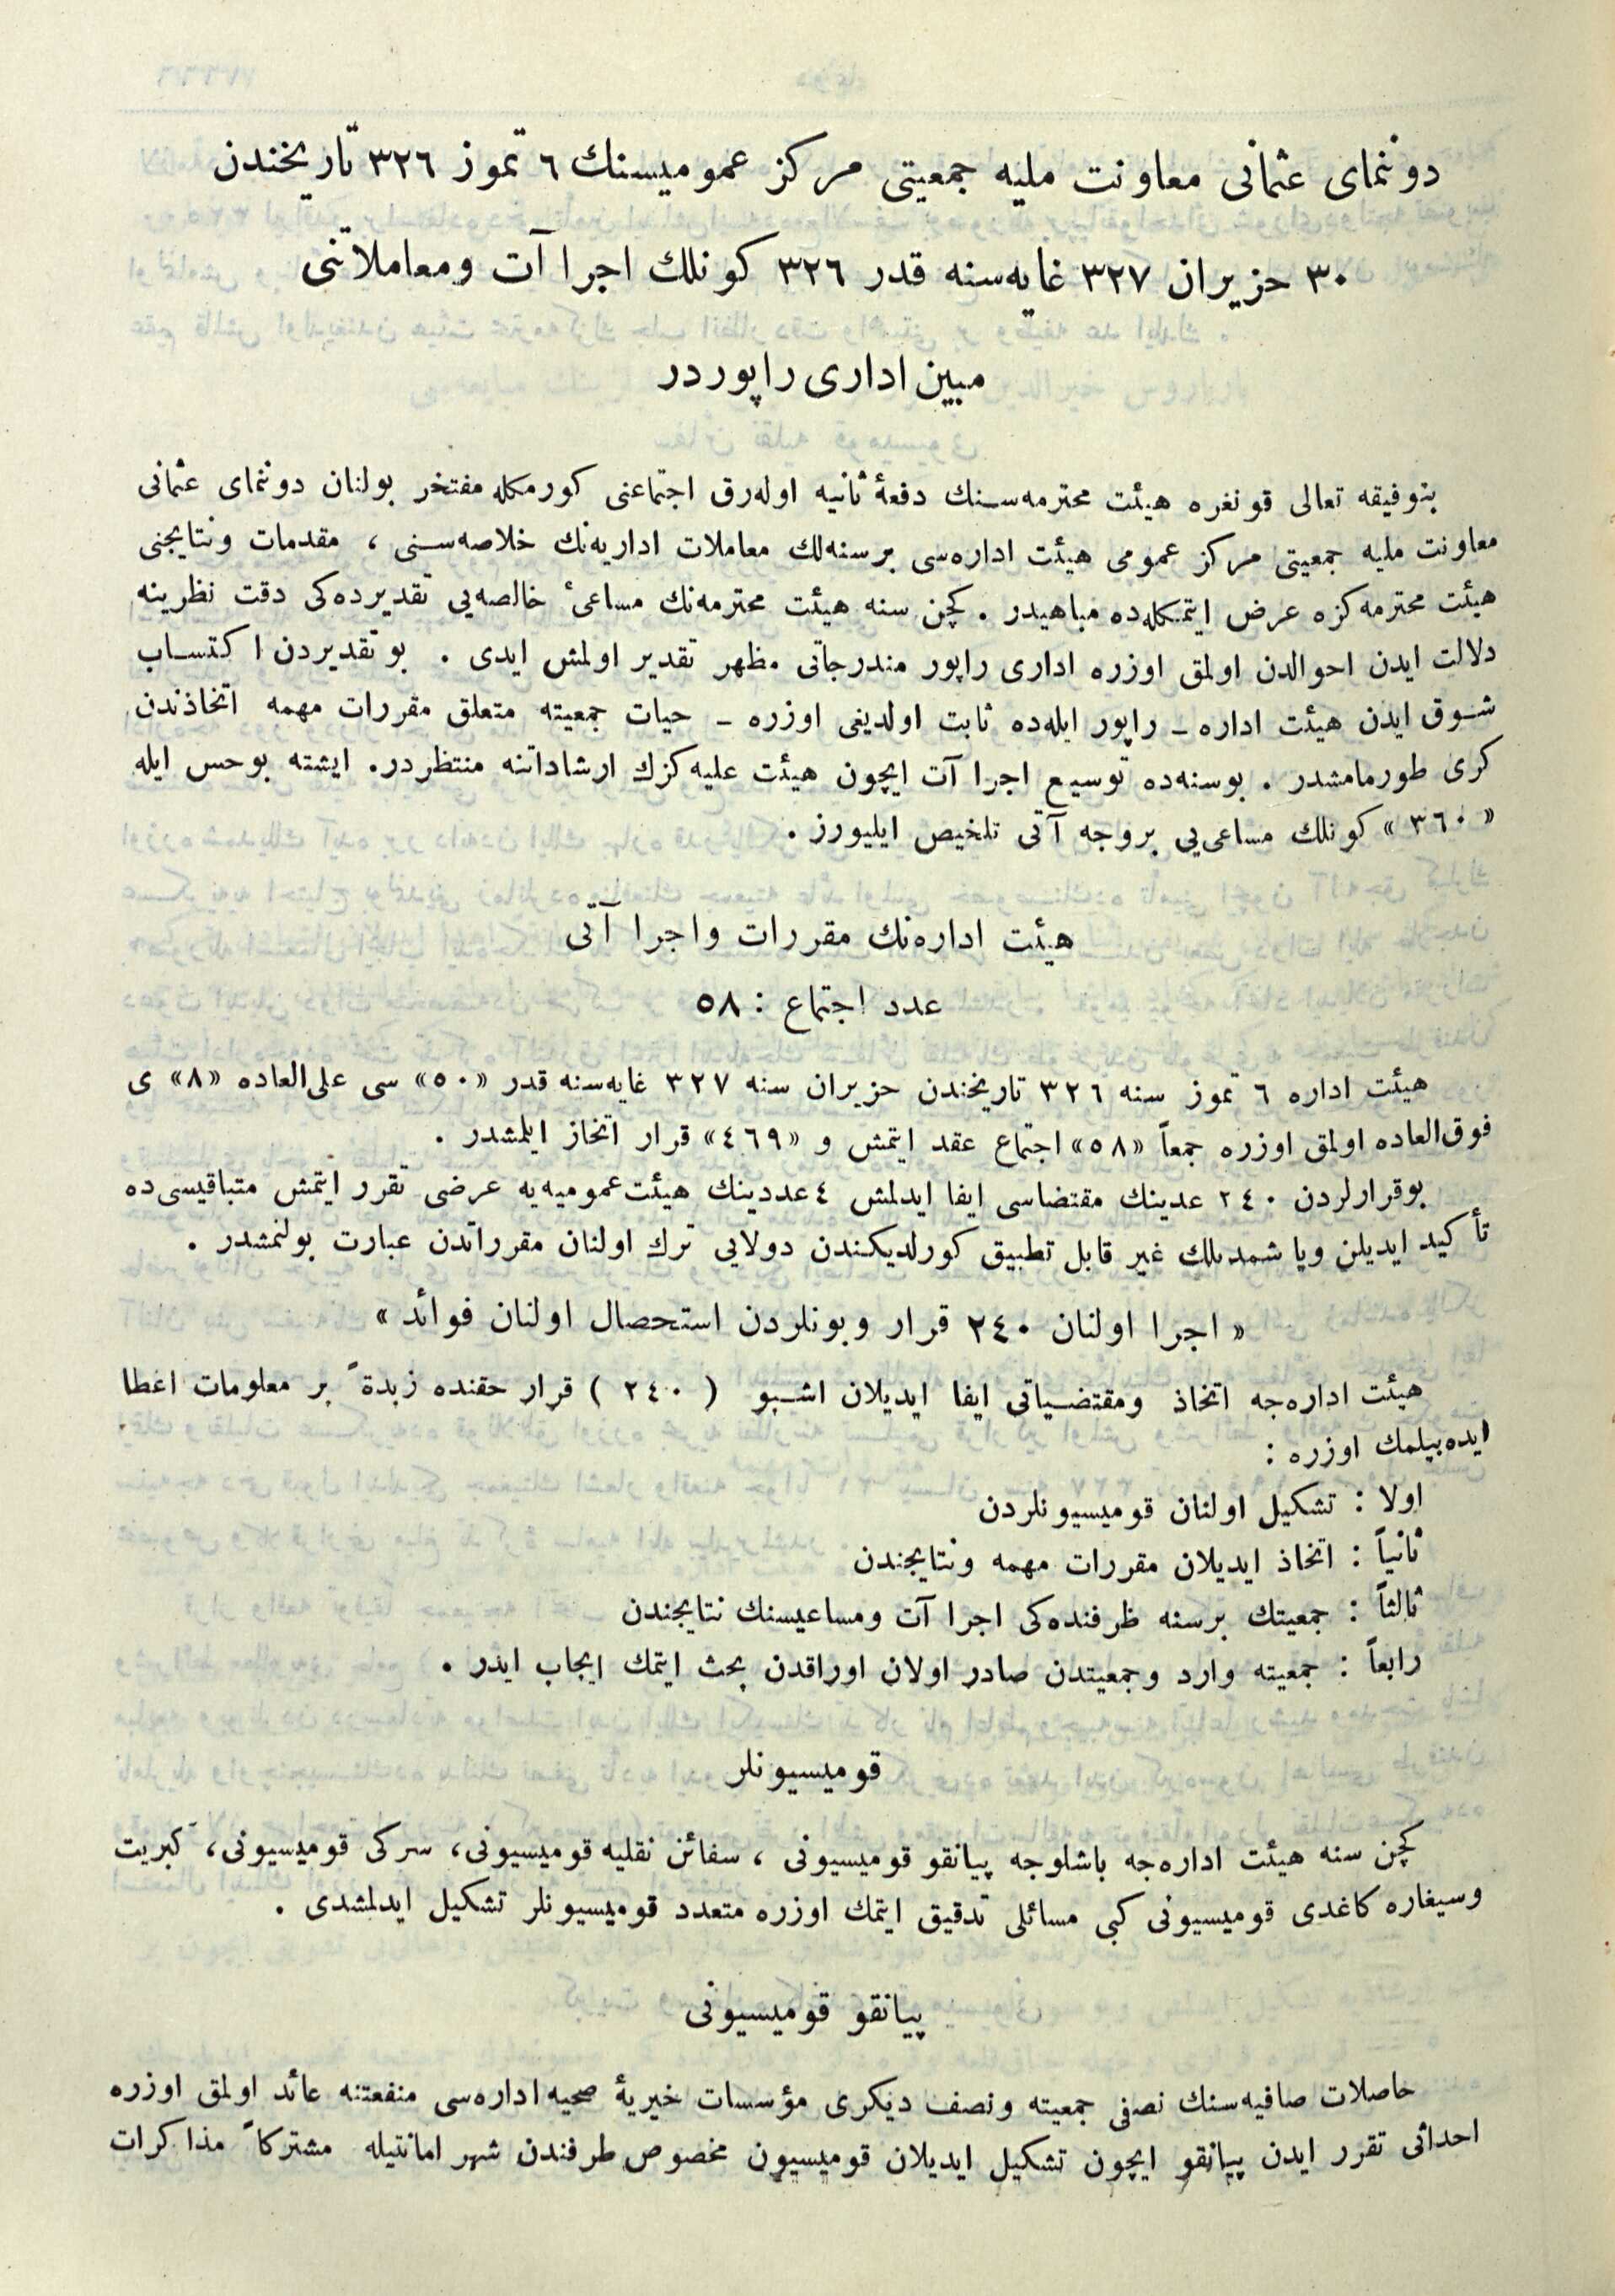 دوننمای عثمانی معاونت ملیه جمعیتی مرکز عمومیسنك ٦ تموز ٣٢٦ تاریخندن
٣٠ حزیران ٣٢٧ غایه‌سنه قدر ٣٢٦ کونلك اجرا آت ومعاملاتنی
مبین اداری راپوردر
بتوفیقه تعالی قونغره هیئت محترمه‌سنك دفعهٔ ثانیه اوله‌رق اجتماعنی کورمکله مفتخر بولنان دوننمای عثمانی
معاونت ملیه جمعیتی مرکز عمومی هیئت اداره‌سی برسنه‌لك معاملات اداریه‌نك خلاصه‌سنی ، مقدمات ونتایجنی
هیئت محترمه‌کزه عرض ایتمکله‌ده مباهیدر . کچن سنه هیئت محترمه‌نك مساعیٔ خالصه‌یی تقدیرده‌کی دقت نظرینه
دلالت ایدن احوالدن اولمق اوزره اداری راپور مندرجاتی مظهر تقدیر اولمش ایدی . بو تقدیردن اکتساب
شوق ایدن هیئت اداره ـ راپور ایله‌ده ثابت اولدیغی اوزره ـ حیات جمعیته متعلق مقررات مهمه اتخاذندن
کری طورمامشدر . بوسنه‌ده توسیع اجرا آت ایچون هیئت علیه‌کزك ارشاداتنه منتظردر. ایشته بوحس ایله
« ٣٦٠ » کونلك مساعی‌یی بروجه آتی تلخیص ایلیورز .
هیئت اداره‌نك مقررات واجرا آتی
عدد اجتماع : ٥٨
هیئت اداره ٦ تموز سنه ٣٢٦ تاریخندن حزیران سنه ٣٢٧ غایه‌سنه قدر «٥٠» سی علی‌العاده «٨» ی
فوق‌العاده اولمق اوزره جمعاً «٥٨» اجتماع عقد ایتمش و «٤٦٩» قرار اتخاز ایلمشدر .
بوقرارلردن ٢٤٠ عدینك مقتضاسی ایفا ایدلمش ٤ عددینك هیئت عمومیه‌یه عرضی تقرر ایتمش متباقیسی‌ده
تأکید ایدیلن ویا شمدیلك غیر قابل تطبیق کورلدیکندن دولایی ترك اولنان مقرراتدن عبارت بولنمشدر .
« اجرا اولنان ٢٤٠ قرار وبونلردن استحصال اولنان فوائد »
هیئت اداره‌جه اتخاذ ومقتضیاتی ایفا ایدیلان اشبو ( ٢٤٠ ) قرار حقنده زبدةً بر معلومات اعطا
ایده‌بیلمك اوزره :
اولا : تشکیل اولنان قومیسیونلردن
ثانیاً : اتخاذ ایدیلان مقررات مهمه ونتایجندن
ثالثاً : جمعیتك برسنه ظرفنده‌کی اجرا آت ومساعیسنك نتایجندن
رابعاً : جمعیته وارد وجمعیتدن صادر اولان اوراقدن بحث ایتمك ایجاب ایدر .
قومیسیونلر
کچن سنه هیئت اداره‌جه باشلوجه پیانقو قومیسیونی ، سفائن نقلیه قومیسیونی، سرکی قومیسیونی، کبریت
وسیغاره کاغدی قومیسیونی کبی مسائلی تدقیق ایتمك اوزره متعدد قومیسیونلر تشکیل ایدلمشدی .
پیانقو قومیسیونی
حاصلات صافیه‌سنك نصفی جمعیته ونصف دیکری مؤسسات خیریهٔ صحیه اداره‌سی منفعتنه عائد اولمق اوزره
احداثی تقرر ایدن پیانقو ایچون تشکیل ایدیلان قومیسیون مخصوص طرفندن شهر امانتیله مشترکاً مذاکرات